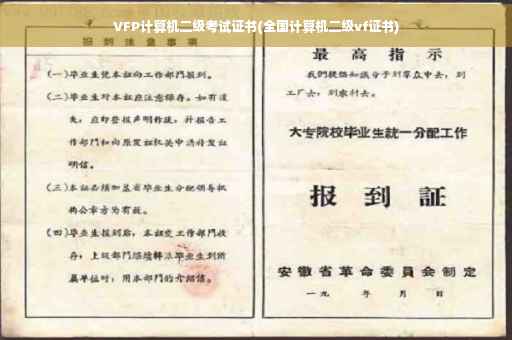 VFP计算机二级考试证书(全国计算机二级vf证书)
报到注意事项
(一)毕业生凭本证向工作部门报到。
(二)毕业生对本证应注意保存。如有遗
失,应即登报声明作废,并报告工
作部门和向原发证机关申请补发证
明信。
(三)本证必须加盖省毕业生分配领导机
构公章方为有效。
(四)毕业生报到后,本证交工作部门收
存;上级部门继续转派毕业生到所
属单位时,用本部门的介绍信。
最高指示
我们提倡知识分子到群众中去,到
工厂去,到农村去。
大专院校毕业生統一分配工作
报到証
安徽省革命委員会制定
一九 年 月 日